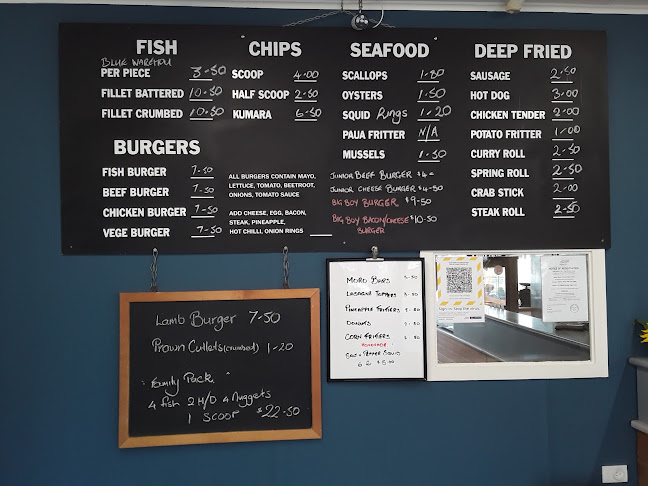 FISH
BLUE WAREHOU
PER PIECE 3-50
FILLET BATTERED 10-50
FILLET CRUMBED 10-50
BURGERS
FISH BURGER 7-50
BEEF BURGER 7-50
CHICKEN BURGER 7-50
VEGE BURGER 7-50
CHIPS
SCOOP 4-00
HALF SCOOP 2-50
KUMARA 6-50
ALL BURGERS CONTAIN MAYO,
LETTUCE, TOMATO, BEETROOT,
ONIONS, TOMATO SAUCE
ADD CHEESE, EGG, BACON,
STEAK, PINEAPPLE,
HOT CHILLI, ONION RINGS
SEAFOOD
SCALLOPS 1-80
OYSTERS 1-50
SQUID Rings 1-20
PAUA FRITTER N/A
MUSSELS 1-50
JUNIOR BEEF BURGER $4=
JUNIOR CHEESE BURGER $4-50
BIG BOY BURGER $9-50
BIG BOY BACON/CHEESE $10-50
BURGER
DEEP FRIED
SAUSAGE 2-50
HOT DOG 3-00
CHICKEN TENDER 2-00
POTATO FRITTER 1-00
CURRY ROLL 2-50
SPRING ROLL 2-50
CRAB STICK 2-00
STEAK ROLL 2-50
Lamb Burger 7-50
Prawn Cutlets (crumbed) 1-20
"Family Pack"
4 fish 2 H/D 4 Nuggets
1 SCOOP $22-50
MORO BARS
LASAGNA TOPPERS
PINEAPPLE FRITTERS
DONUTS
CORN FRITTERS
HOMEMADE
SALT + PEPPER SQUID